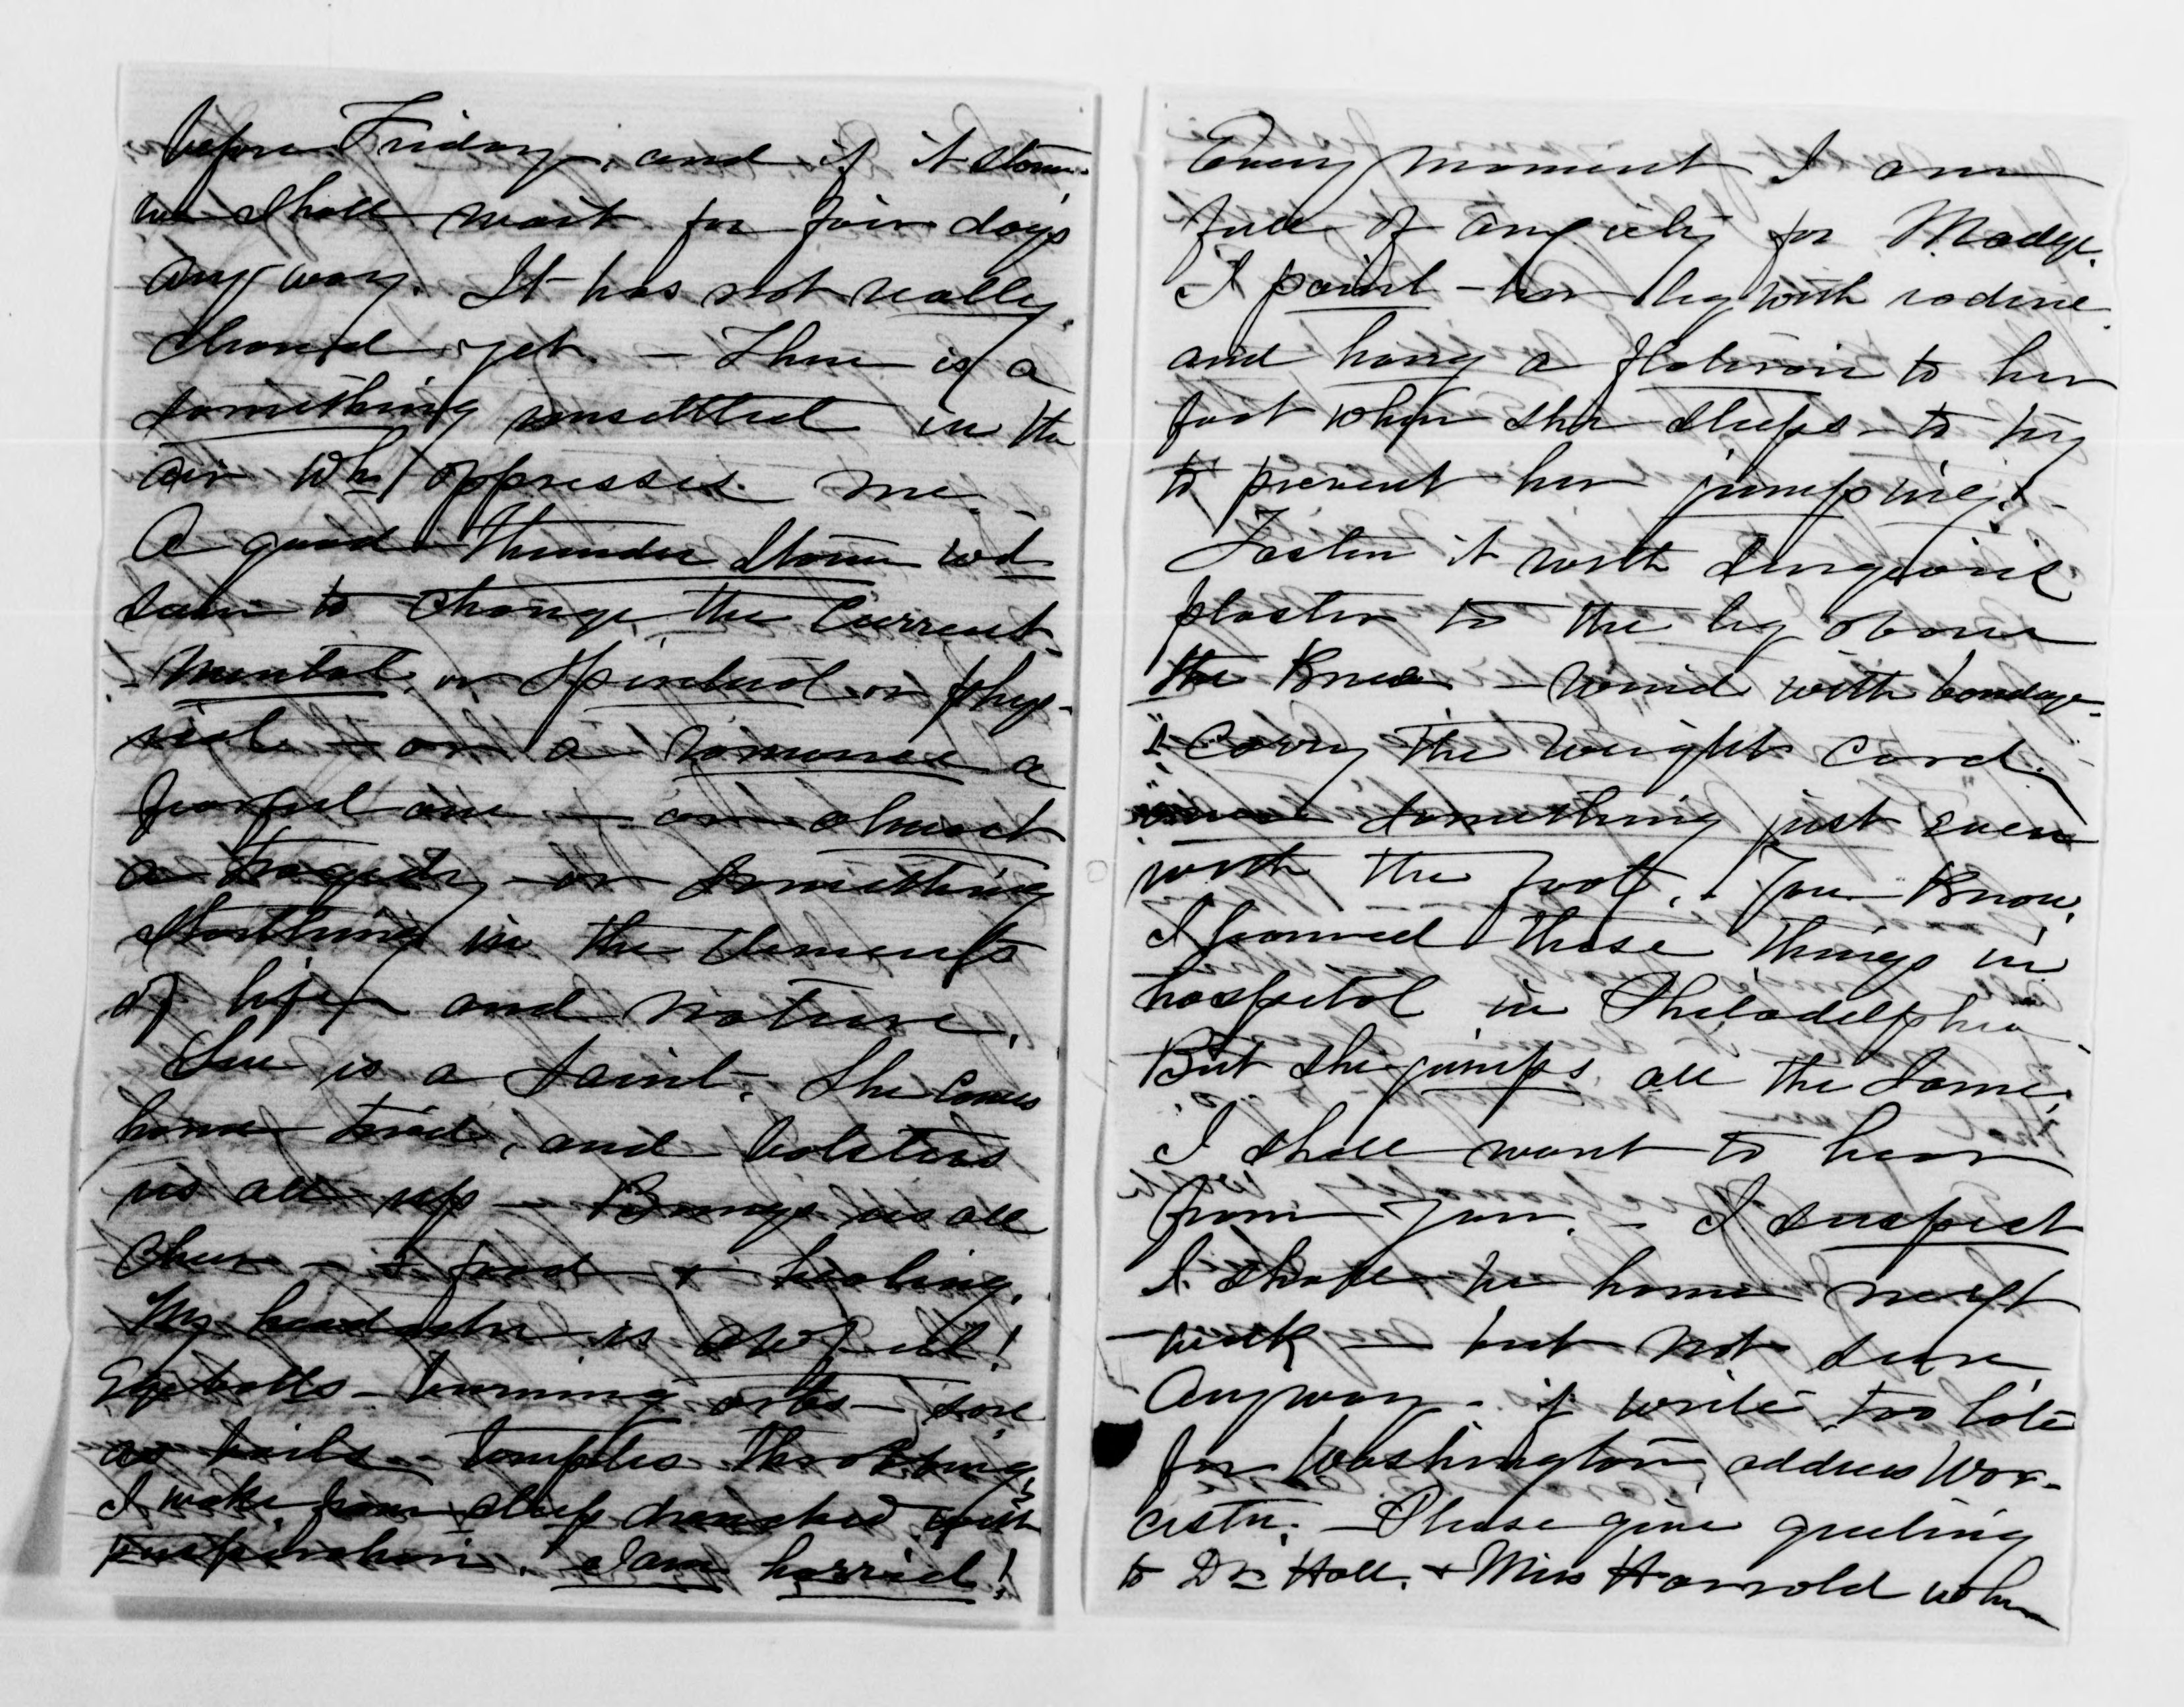 before Friday, and if it storms
we shall wait for fair days
any way. It has not really
cleared yet. — There is a
something unsettled in the
air wh oppresses me.
A good thunder storm wd
seem to change the current
- mental, or spiritual or phys-
ical — or a romance a
fearful one — or almost
a tragedy — or something
startling in the elements
of life and nature.
Sue is a saint. She comes
home tired, and bolsters
us all up — Brings us all
cheer — & food & healing.
My headache is awful!
Eyeballs - burning orbs - sore
as boils - temples throbbing
I wake from sleep drenched with
perspiration. I am horrid!
Every moment I am
full of anxiety for Madge.
I paint - her leg with iodine
and hang a flatiron to her
foot when she sleeps - to try
to prevent her jumping! -
Fasten it with surgeons
plaster to the leg above
the knee - wind with bandage
& carry the weight cord
something just even
with the foot. You know,
I learned these things in
hospital in Philadelphia
But she jumps all the same.
I shall want to hear
from you. - I suspect
I shall be home next
week — but not sure
Anyway - if write too late
for Washington, address Wor-
cester. — Please give greeting
to Dr. Hall. & Miss Harrold who